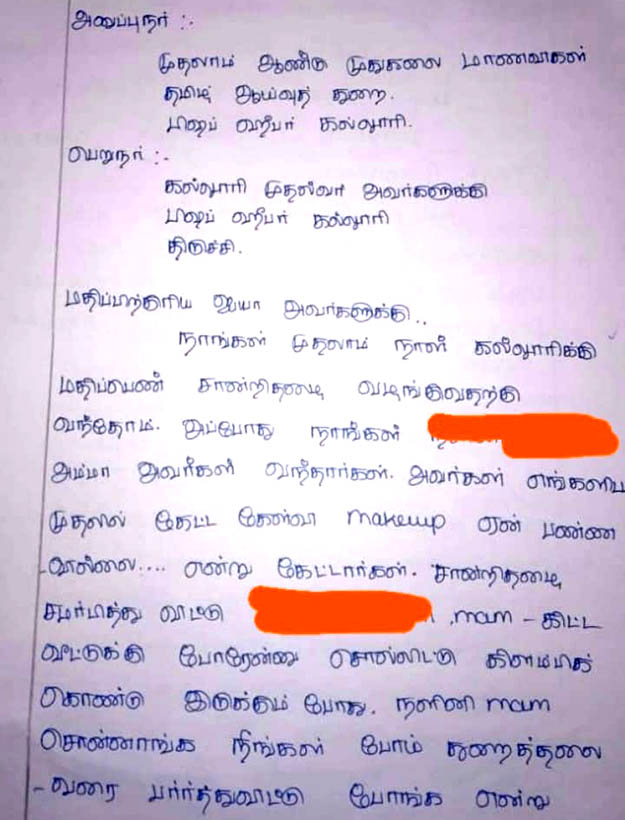 அனுப்புநர் :-
முதலாம் ஆண்டு முதுகலை மாணவிகள்
தமிழ் ஆய்வுத் துறை.
பிஷப் ஹீபர் கல்லூரி.
பெறுநர் :-
கல்லூரி முதல்வர் அவர்களுக்கு
பிஷப் ஹீபர் கல்லூரி
திருச்சி.
மதிப்பிற்குரிய ஐயா அவர்களுக்கு..
நாங்கள் முதலாம் நாள் கல்லூரிக்கு
மதிப்பெண் சான்றிதழை வழங்குவதற்கு
வந்தோம். அப்போது நாங்கள்
அம்மா அவர்கள் வந்தார்கள். அவர்கள் எங்களிய
முதலில் கேட்ட கேள்வி makeup ஏன் பண்ண
-வில்லை.... என்று கேட்டார்கள். சான்றிதழை
சமர்பித்து விட்டு mam - கிட்ட
வீட்டுக்கு போரேன்னு சொல்லிட்டு கிளம்பிக்
கொண்டு இருக்கும் போது. நளினி mam
சொன்னாங்க நீங்கள் போய் துறைத்தலை
-வரை பார்ர்த்துவிட்டு போங்க என்று